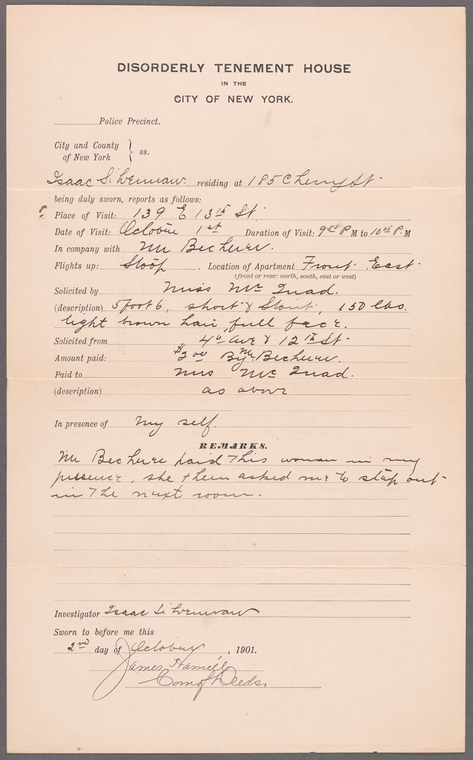 DISORDERLY TENEMENT HOUSE
IN THE
CITY OF NEW YORK.
Police Precinct.
City and County
of New York } ss.
Isaac Silverman residing at 185 Cherry St.
being duly sworn, reports as follows:
Place of Visit: 139 E 13th St.
Date of Visit: October 1st Duration of Visit: 9 P M to 10 P. M
In company with Mr
Flights up: Stoop Location of Apartment Front East
(front or rear: north, south, east or west)
Solicited by Miss Mc Quad.
(description) 5 foot 6, short & Stout, 150 lbs.
light brown hair, full face.
Solicited from 4th Ave & 12th St.
Amount paid: $2.00 By Mr
Paid to Miss Mc Quad.
(description) as above
In presence of My self.
REMARKS.
Mr paid this woman in my
presence, she then asked me to step out
in the next room.
Investigator Isaac Silverman
Sworn to before me this
2nd day of October, 1901.
James Hamill
Com of Deeds.